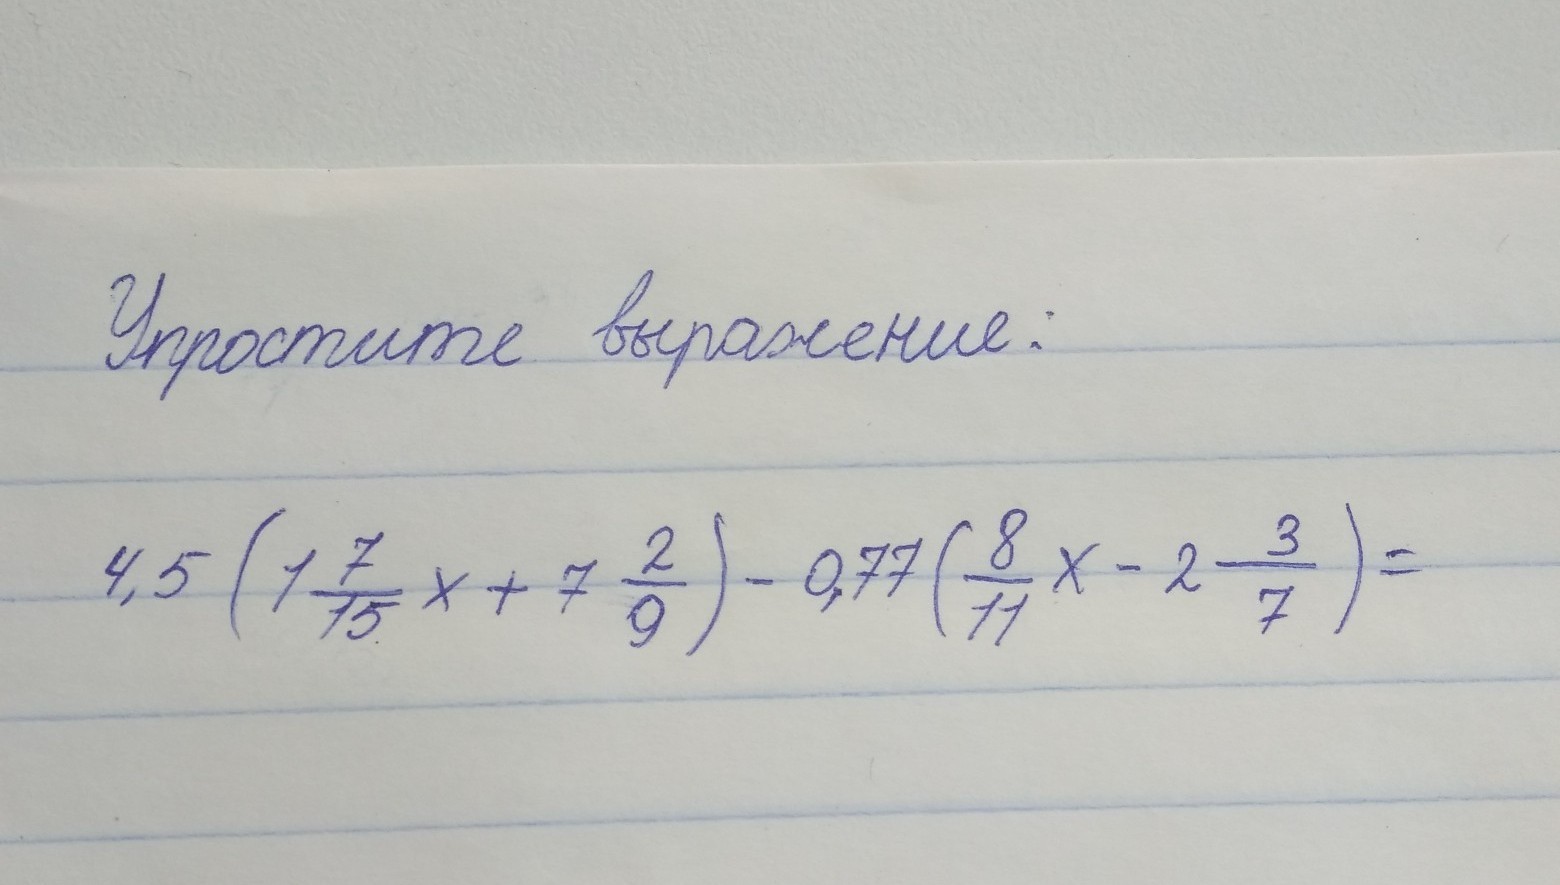 Упростите выражение:
4,5 (1 7/15 x + 7 2/9) - 0,77 (8/11 x - 2 3/7) =